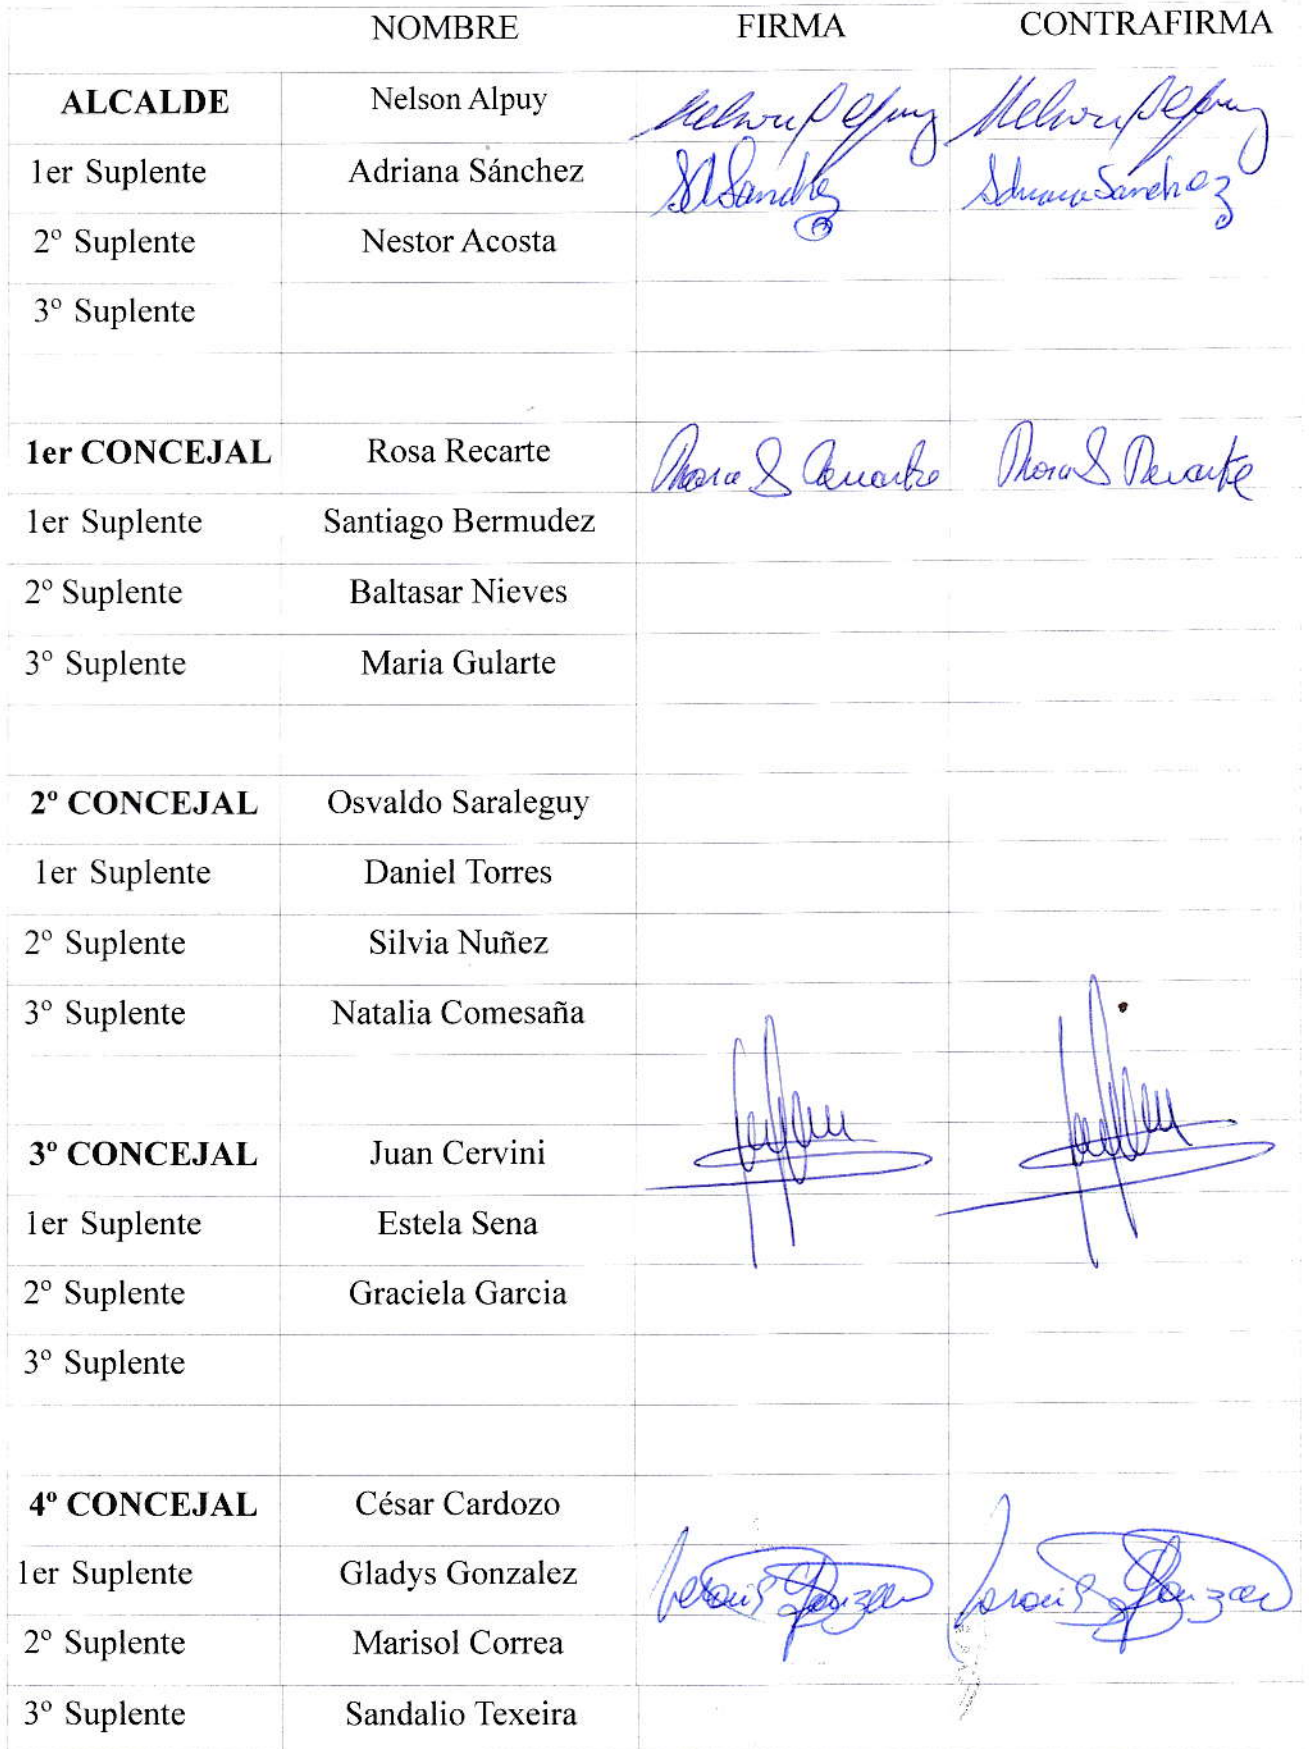 NOMBRE FIRMA CONTRAFIRMA
ALCALDE Nelson Alpuy
1er Suplente Adriana Sánchez Adriana Sánchez
2º Suplente Nestor Acosta
3º Suplente
1er CONCEJAL Rosa Recarte Rosa S Recarte Rosa S Recarte
1er Suplente Santiago Bermudez
2º Suplente Baltasar Nieves
3º Suplente Maria Gularte
2º CONCEJAL Osvaldo Saraleguy
1er Suplente Daniel Torres
2º Suplente Silvia Nuñez
3º Suplente Natalia Comesaña
3º CONCEJAL Juan Cervini
1er Suplente Estela Sena
2º Suplente Graciela Garcia
3º Suplente
4º CONCEJAL César Cardozo
1er Suplente Gladys Gonzalez
2º Suplente Marisol Correa
3º Suplente Sandalio Texeira